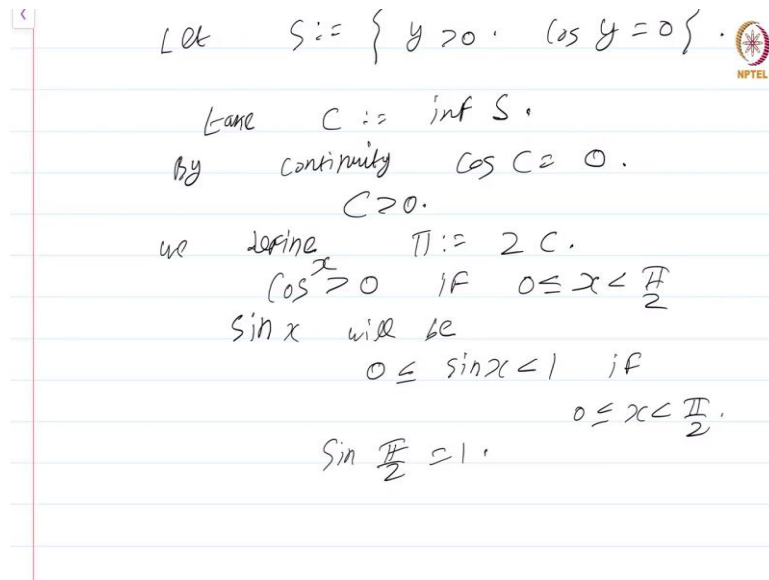 Let S := { y > 0 . Cos y = 0 } .
NPTEL
take C := inf S .
By continuity Cos C = 0 .
C > 0 .
we define π := 2 C .
Cos x > 0 if 0 ≤ x < π/2
Sin x will be
0 ≤ sin x < 1 if
0 ≤ x < π/2 .
Sin π/2 = 1 .